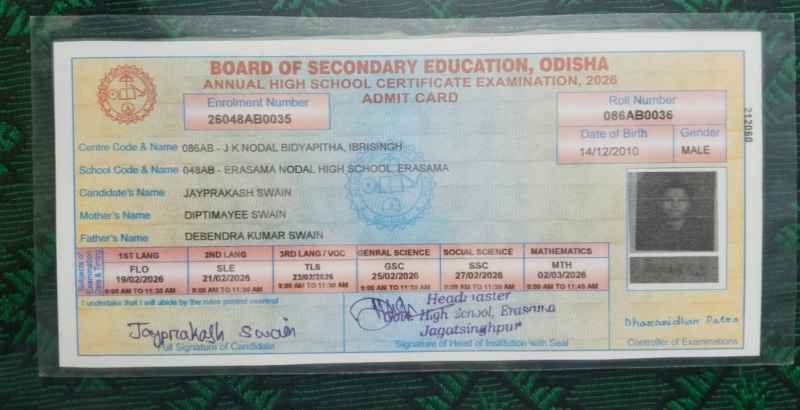 BOARD OF SECONDARY EDUCATION, ODISHA
ANNUAL HIGH SCHOOL CERTIFICATE EXAMINATION, 2026
ADMIT CARD
Enrolment Number
26048AB0035
Roll Number
086AB0036
Date of Birth Gender
14/12/2010 MALE
212060
Centre Code & Name 086AB - J K NODAL BIDYAPITHA, IBRISINGH
School Code & Name 048AB - ERASAMA NODAL HIGH SCHOOL, ERASAMA
Candidate's Name JAYPRAKASH SWAIN
Mother's Name DIPTIMAYEE SWAIN
Father's Name DEBENDRA KUMAR SWAIN
Subjects of Examination Date & Timing
1ST LANG 2ND LANG 3RD LANG / VOC GENRAL SCIENCE SOCIAL SCIENCE MATHEMATICS
FLO SLE TLS GSC SSC MTH
19/02/2026 21/02/2026 23/02/2026 25/02/2026 27/02/2026 02/03/2026
9:00 AM TO 11:30 AM 9:00 AM TO 11:30 AM 9:00 AM TO 11:30 AM 9:00 AM TO 11:30 AM 9:00 AM TO 11:30 AM 9:00 AM TO 11:45 AM
I undertake that I will abide by the rules printed overleaf
Jayprakash Swain
Full Signature of Candidate
Headmaster
High School, Erasama
Jagatsinghpur
Signature of Head of Institution with Seal
Dharanidhar Patra
Controller of Examinations